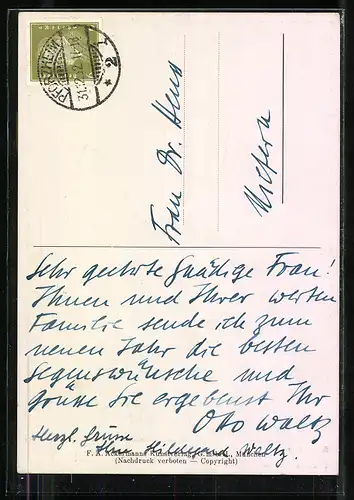 PFORZHEIM
2
Frau Dr. Heus
Niefern
Sehr geehrte Gnädige Frau!
Ihnen und Ihrer werten
Familie sende ich zum
neuen Jahr die besten
Segenswünsche und
grüße Sie ergebenst Ihr
Otto Waltz
Herzl. Grüsse
Hildegard Waltz.
F. A. Ackermanns Kunstverlag, München
(Nachdruck verboten — Copyright)